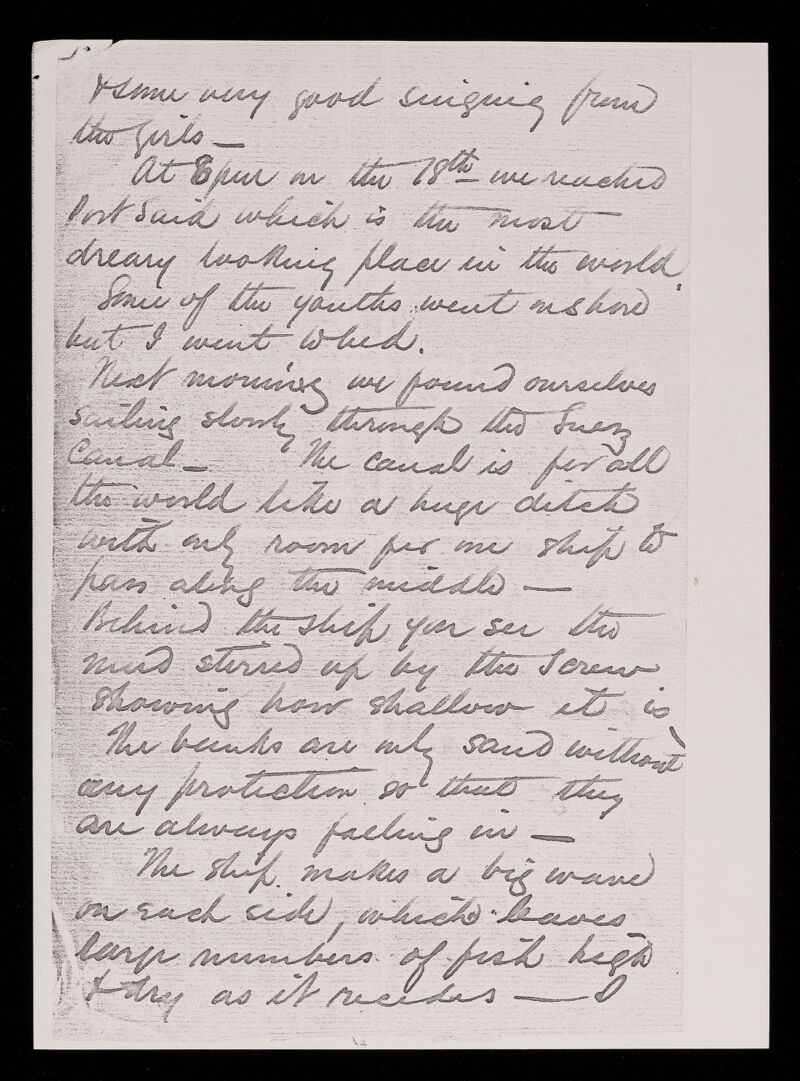 & some very good singing from
the girls —
At 8pm on the 18th we reached
Port Said which is the most
dreary looking place in the world.
Some of the youths went on shore
but I went to bed.
Next morning we found ourselves
sailing slowly through the Suez
Canal — The canal is for all
the world like a huge ditch
with only room for one ship to
pass along the middle —
Behind the ship you see the
mud stirred up by the Screw
showing how shallow it is
The banks are only sand without
any protection so that they
are always falling in —
The ship makes a big wave
on each side, which leaves
large numbers of fish high
& dry as it recedes — I